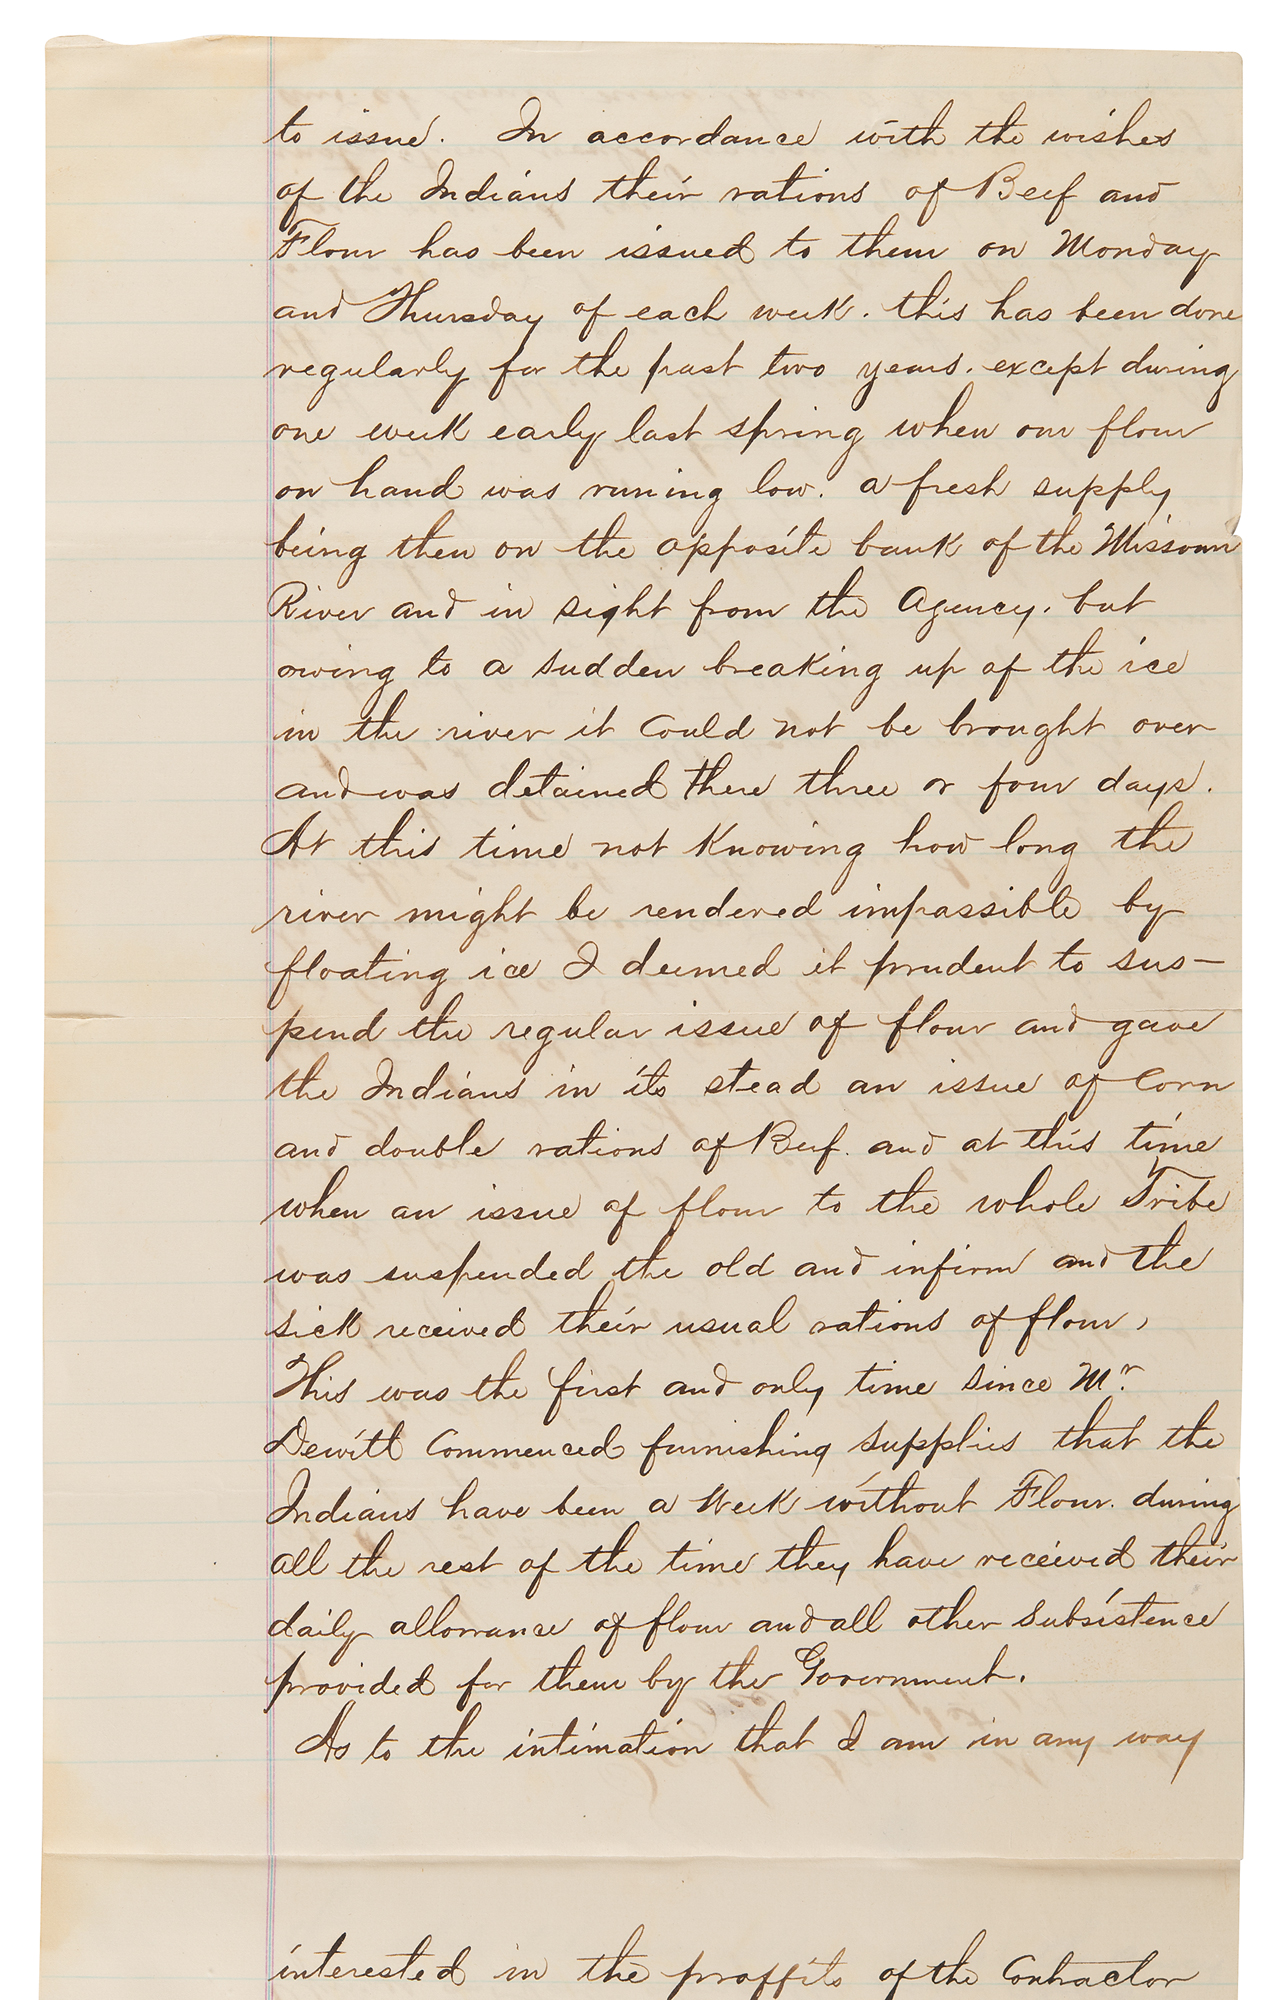 to issue. In accordance with the wishes
of the Indians their rations of Beef and
Flour has been issued to them on Monday
and Thursday of each week. this has been done
regularly for the past two years. except during
one week early last spring when our flour
on hand was runing low. a fresh supply
being then on the opposite bank of the Missouri
River and in sight from the Agency. but
owing to a sudden breaking up of the ice
in the river it could not be brought over
and was detained there three or four days.
At this time not knowing how long the
river might be rendered impassible by
floating ice I deemed it prudent to sus-
pend the regular issue of flour and gave
the Indians in its stead an issue of Corn
and double rations of Beef. and at this time
when an issue of flour to the whole Tribe
was suspended the old and infirm and the
sick received their usual rations of flour,
This was the first and only time since Mr.
Dewitt Commenced furnishing supplies that the
Indians have been a Week without Flour. during
all the rest of the time they have received their
daily allowance of flour and all other Subsistence
provided for them by the Government.
As to the intimation that I am in any way
interested in the proffits of the Contractor